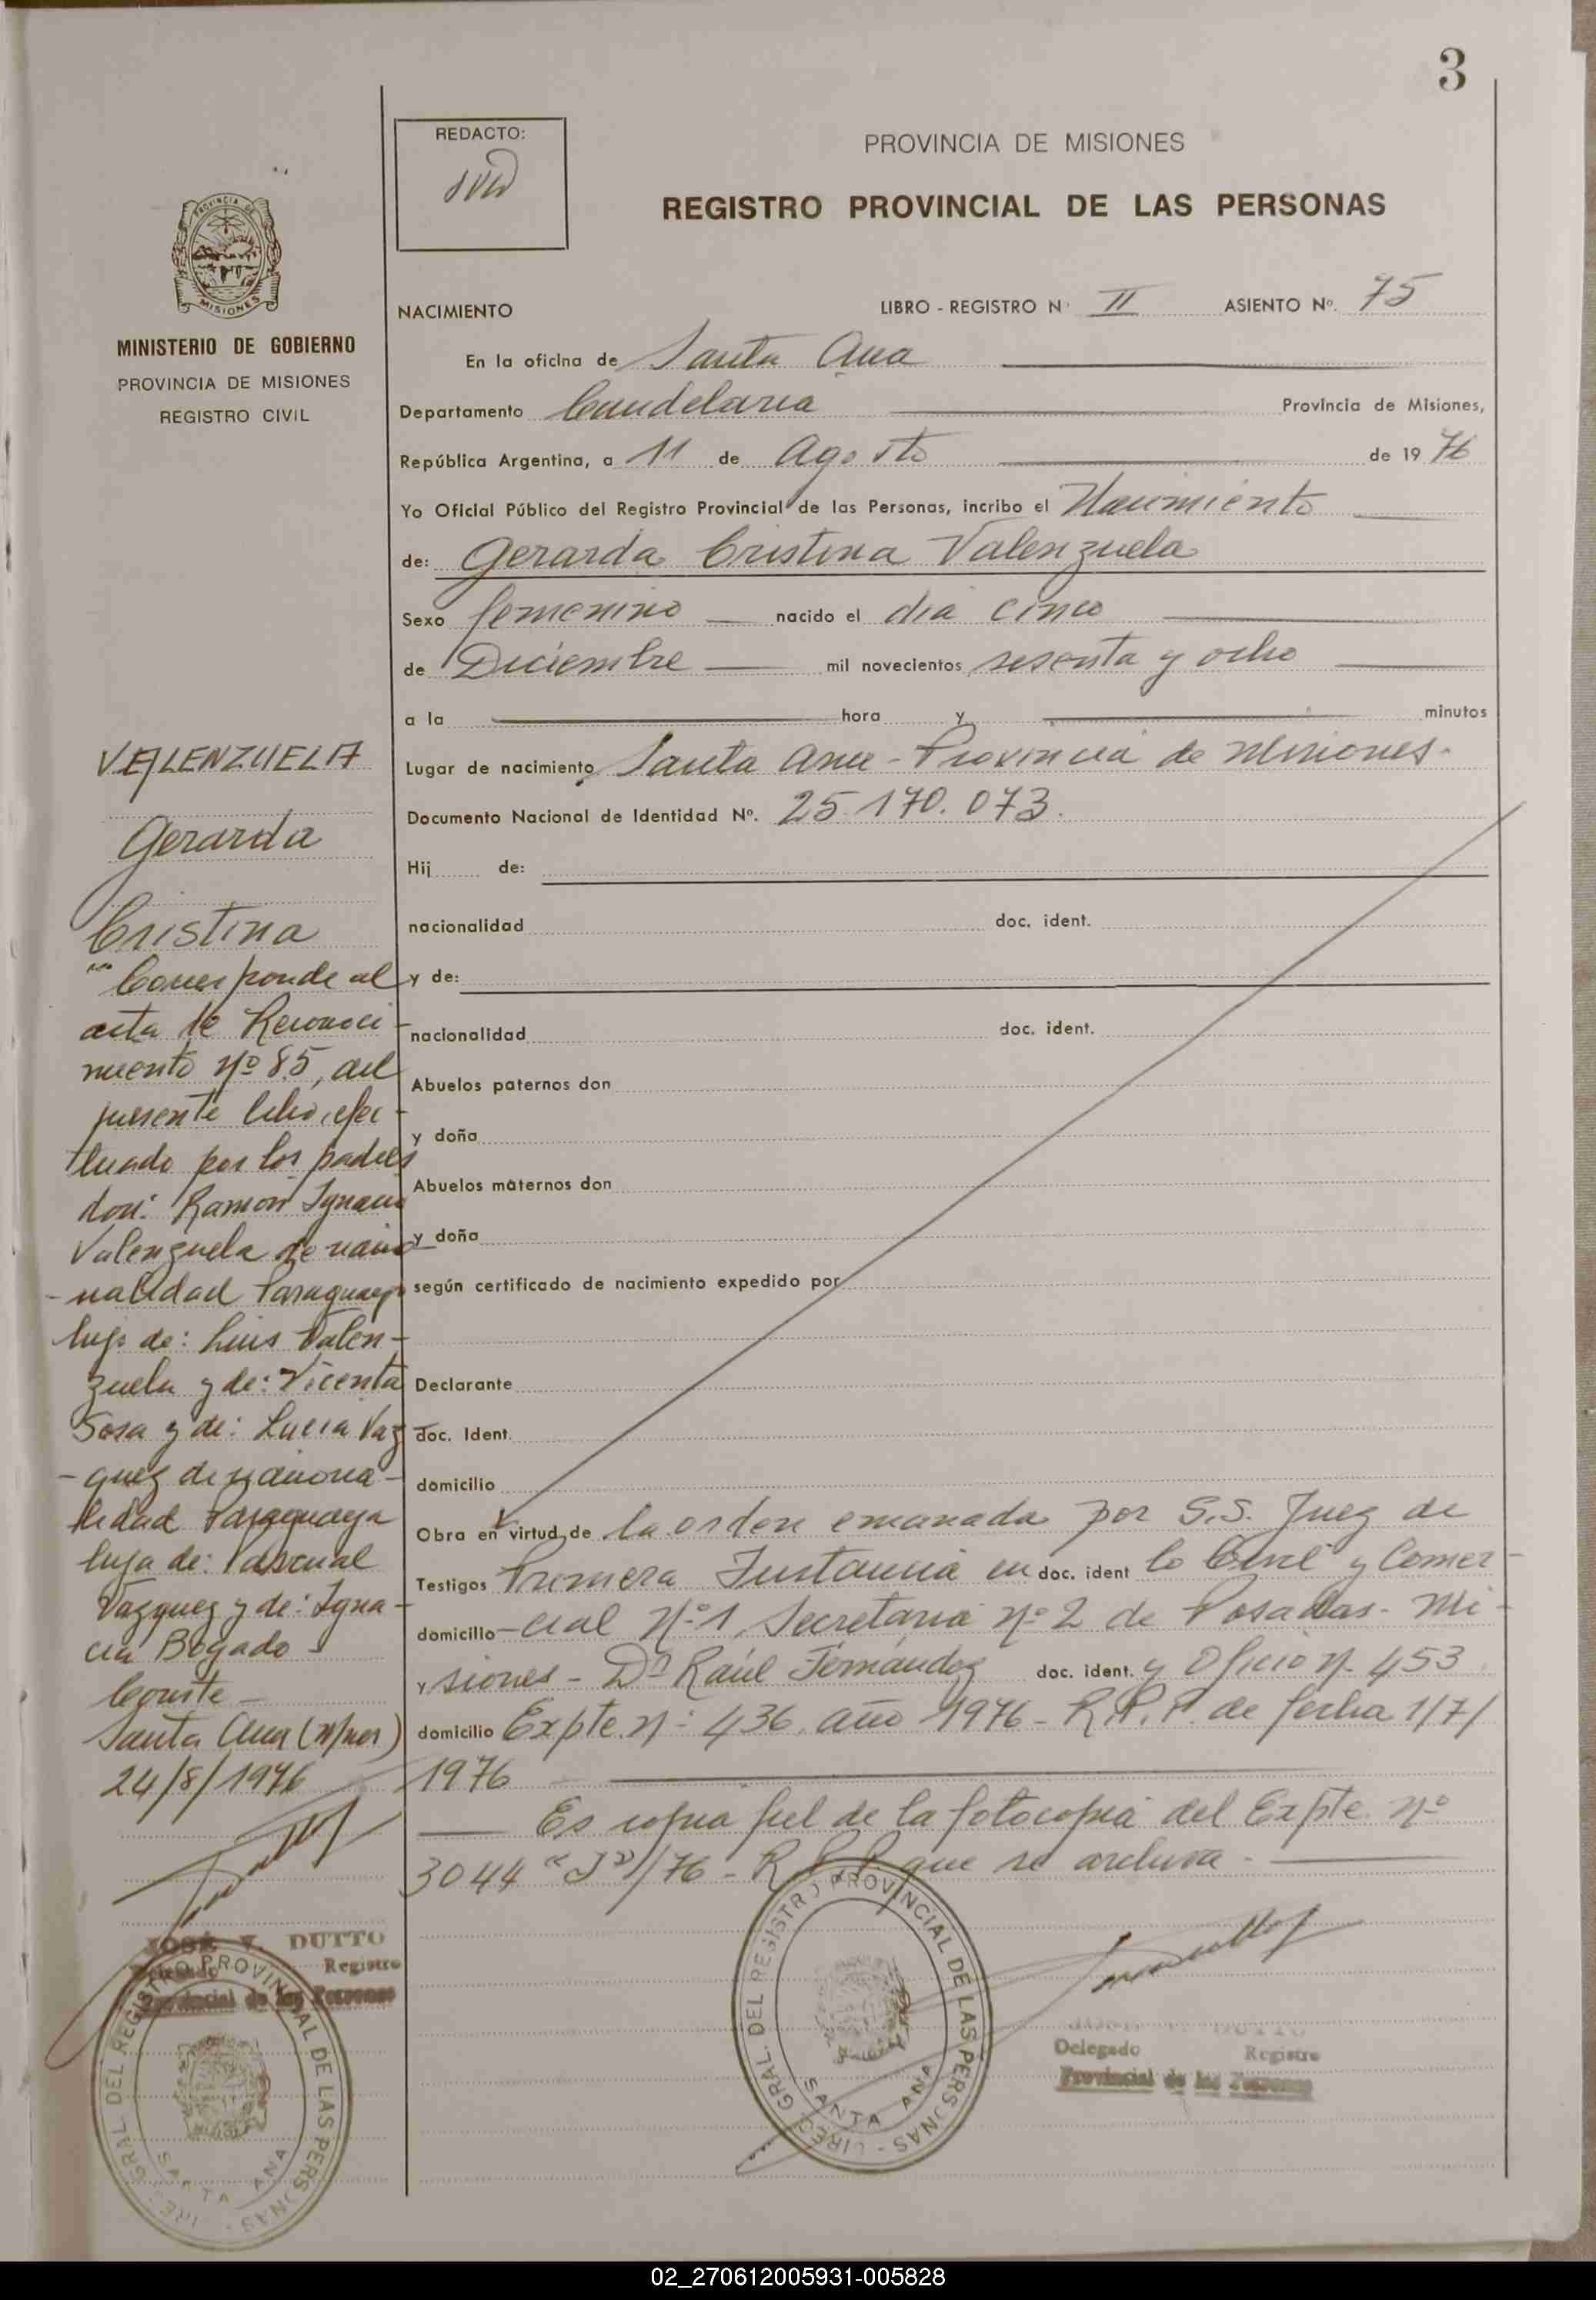 3
REDACTO:
PROVINCIA DE MISIONES
REGISTRO PROVINCIAL DE LAS PERSONAS
PROVINCIA DE
MISIONES
MINISTERIO DE GOBIERNO
PROVINCIA DE MISIONES
REGISTRO CIVIL
NACIMIENTO LIBRO - REGISTRO N° II ASIENTO Nº. 75
En la oficina de Santa Ana
Departamento Candelaria Provincia de Misiones,
República Argentina, a 11 de Agosto de 1976
Yo Oficial Público del Registro Provincial de las Personas, incribo el Nacimiento
de: Gerarda Cristina Valenzuela
Sexo femenino nacido el dia cinco
de Diciembre mil novecientos sesenta y ocho
a la hora y minutos
Lugar de nacimiento Santa Ana - Provincia de Misiones.
Documento Nacional de Identidad Nº. 25.170.073.
Hij de:
nacionalidad doc. ident.
y de:
nacionalidad doc. ident.
Abuelos paternos don
y doña
Abuelos maternos don
y doña
según certificado de nacimiento expedido por
Declarante
doc. Ident.
domicilio
Obra en virtud de la orden emanada por S.S. Juez de
Testigos Primera Instancia en doc. ident lo Civil y Comer-
domicilio -cial Nº 1, Secretaria nº 2 de Posadas - Mi-
y siones - Dº Raúl Fernández doc. ident. y Oficio nº 453
domicilio Expte. nº 436, año 1976 - R.P.P. de fecha 1/7/
1976
Es copia fiel de la fotocopia del Expte nº
3044 "J"/76 - R.P.P. que se archiva -
VALENZUELA
Gerarda
Cristina
Corresponde al
acta de Reconoci-
miento nº 85, del
presente libro, efec-
tuado por los padres
don: Ramon Ignacio
Valenzuela de nacio-
-nalidad Paraguaya
hijo de: Luis Valen-
zuela y de: Vicenta
Sosa y de: Lucia Vaz-
-quez de naciona-
lidad Paraguaya
hija de: Pascual
Vazquez y de: Igna-
cia Bogado
Conste -
Santa Ana (Mnes)
24/8/1976
JOSE V. DUTTO
Delegado Registro
Provincial de las Personas
DIREC. GRAL. DEL REGISTRO PROVINCIAL DE LAS PERSONAS
SANTA ANA
DIREC. GRAL. DEL REGISTRO PROVINCIAL DE LAS PERSONAS
SANTA ANA
DUTTO
Delegado Registro
Provincial de las Personas
02_270612005931-005828